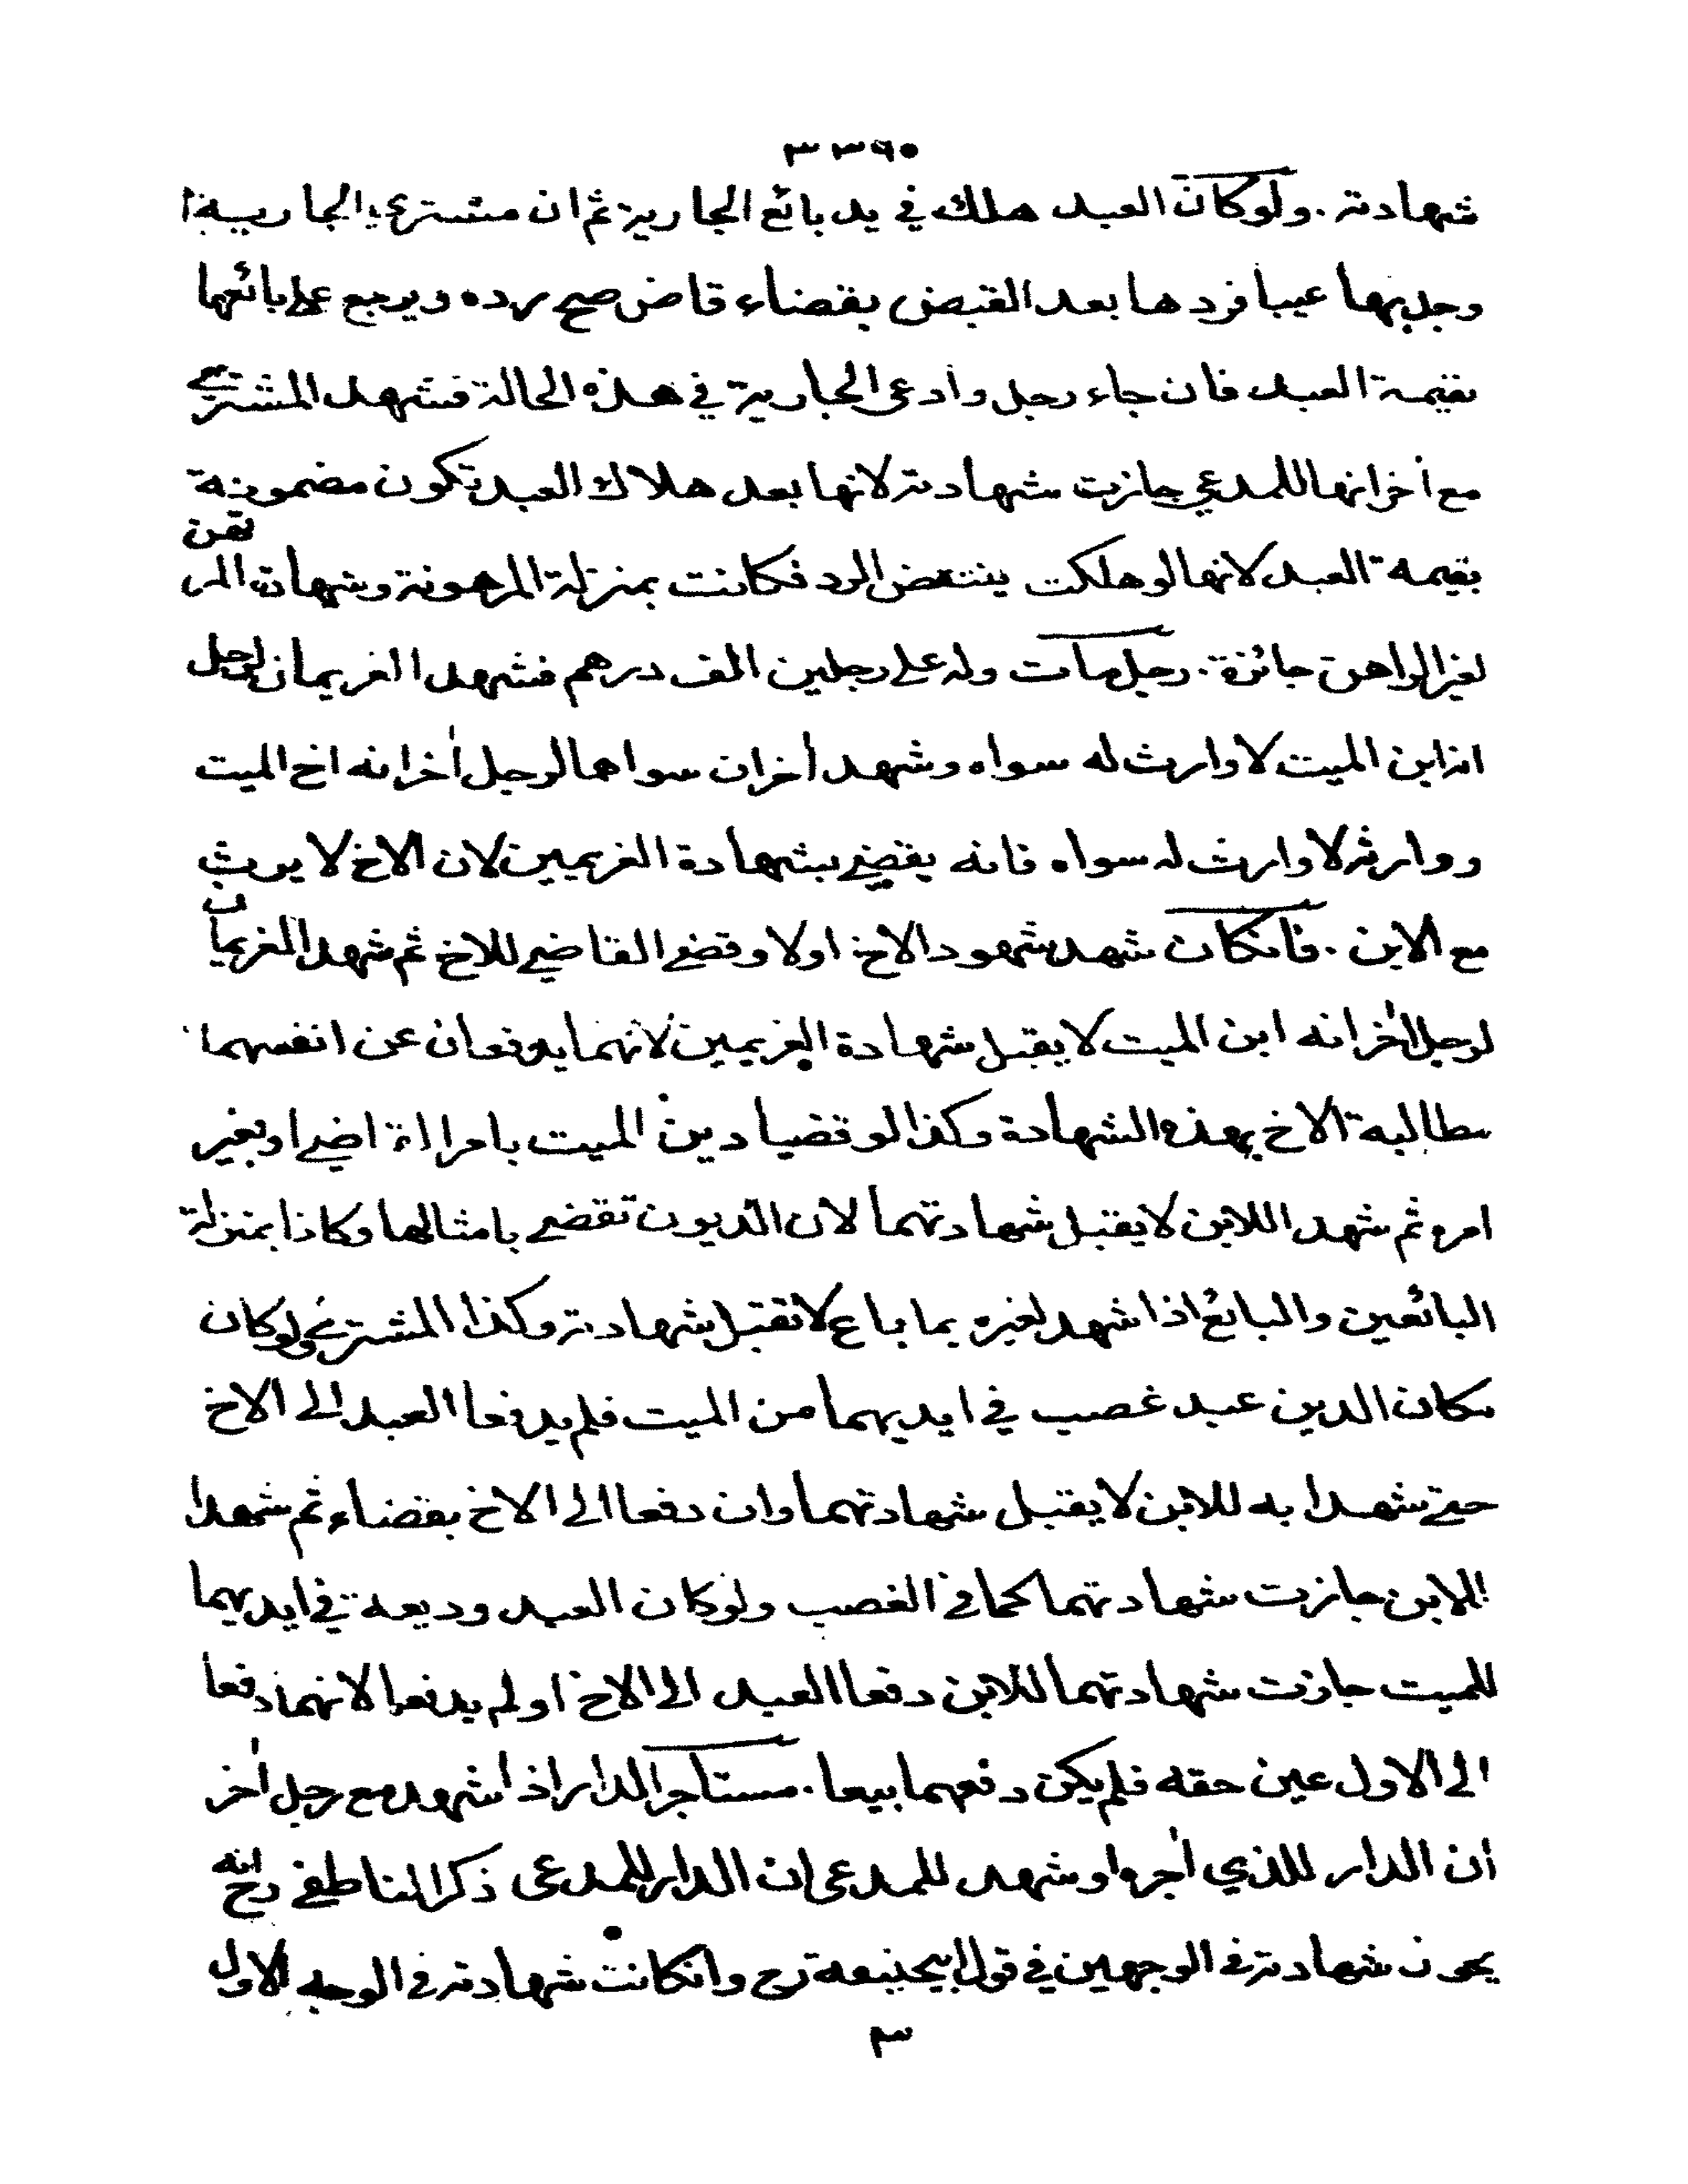 ٣٣٦٥
شهادته . ولوكان العبد هلك في يد بائع الجارية ثم ان مشتري الجارية
وجد بها عيبا فردها بعد القبض بقضاء قاض صح رده ويرجع على بائعها
بقيمة العبد فان جاء رجل وادعى الجارية في هذه الحالة فشهد المشتري
مع اخر انها للمدعي جازت شهادته لانها بعد هلاك العبد تكون مضمونة
بقيمة العبد لانها لو هلكت ينتقض الرد فكانت بمنزلة المرهونة وشهادت المرتهن
لغير الراهن جائزة . رجل مات وله على رجلين الف درهم فشهد الغريمان لرجل
انه ابن الميت لا وارث له سواه وشهد أخران سواهما لرجل أخر انه اخ الميت
ووارثه لا وارث له سواه فانه يقضي بشهادة الغريمين لان الاخ لا يرث
مع الابن . فانكان شهد شهود الاخ اولا وقضى القاضي للاخ ثم شهد الغريمان
لرجل أخر انه ابن الميت لا يقبل شهادة الغريمين لانهما يدفعان عن انفسهما
مطالبة الاخ بهذه الشهادة وكذا لو قضيا دين الميت بامر اوبغير
امره ثم شهدا للابن لا يقبل شهادتهما لان الديون تقضى بامثالها وكاذا بمنزلة
البائعين والبائع اذا شهد لغيره بما باع لا تقبل شهادته وكذا المشتري ولوكان
مكان الدين عبد غصب في ايديهما من الميت فلم يدفعا العبد الى الاخ
حتى شهدا به للابن لا يقبل شهادتهما وان دفعا الى الاخ بقضاء ثم شهدا
للابن جازت شهادتهما كما في الغصب ولوكان العبد وديعة في ايديهما
للميت جازت شهادتهما للابن دفعا العبد الى الاخ او لم يدفعا لانهما دفعا
الى الاول عين حقه فلم يكن دفعهما بيعا . مستاجر الدار اذا شهد مع رجل أخر
ان الدار للذي أجره او شهد للمدعى ان الدار للمدعى ذكر الناطفي رح انه
يجوز شهادته في الوجهين في قول ابيحنيفة رح وانكانت شهادته في الوجه الاول
٣